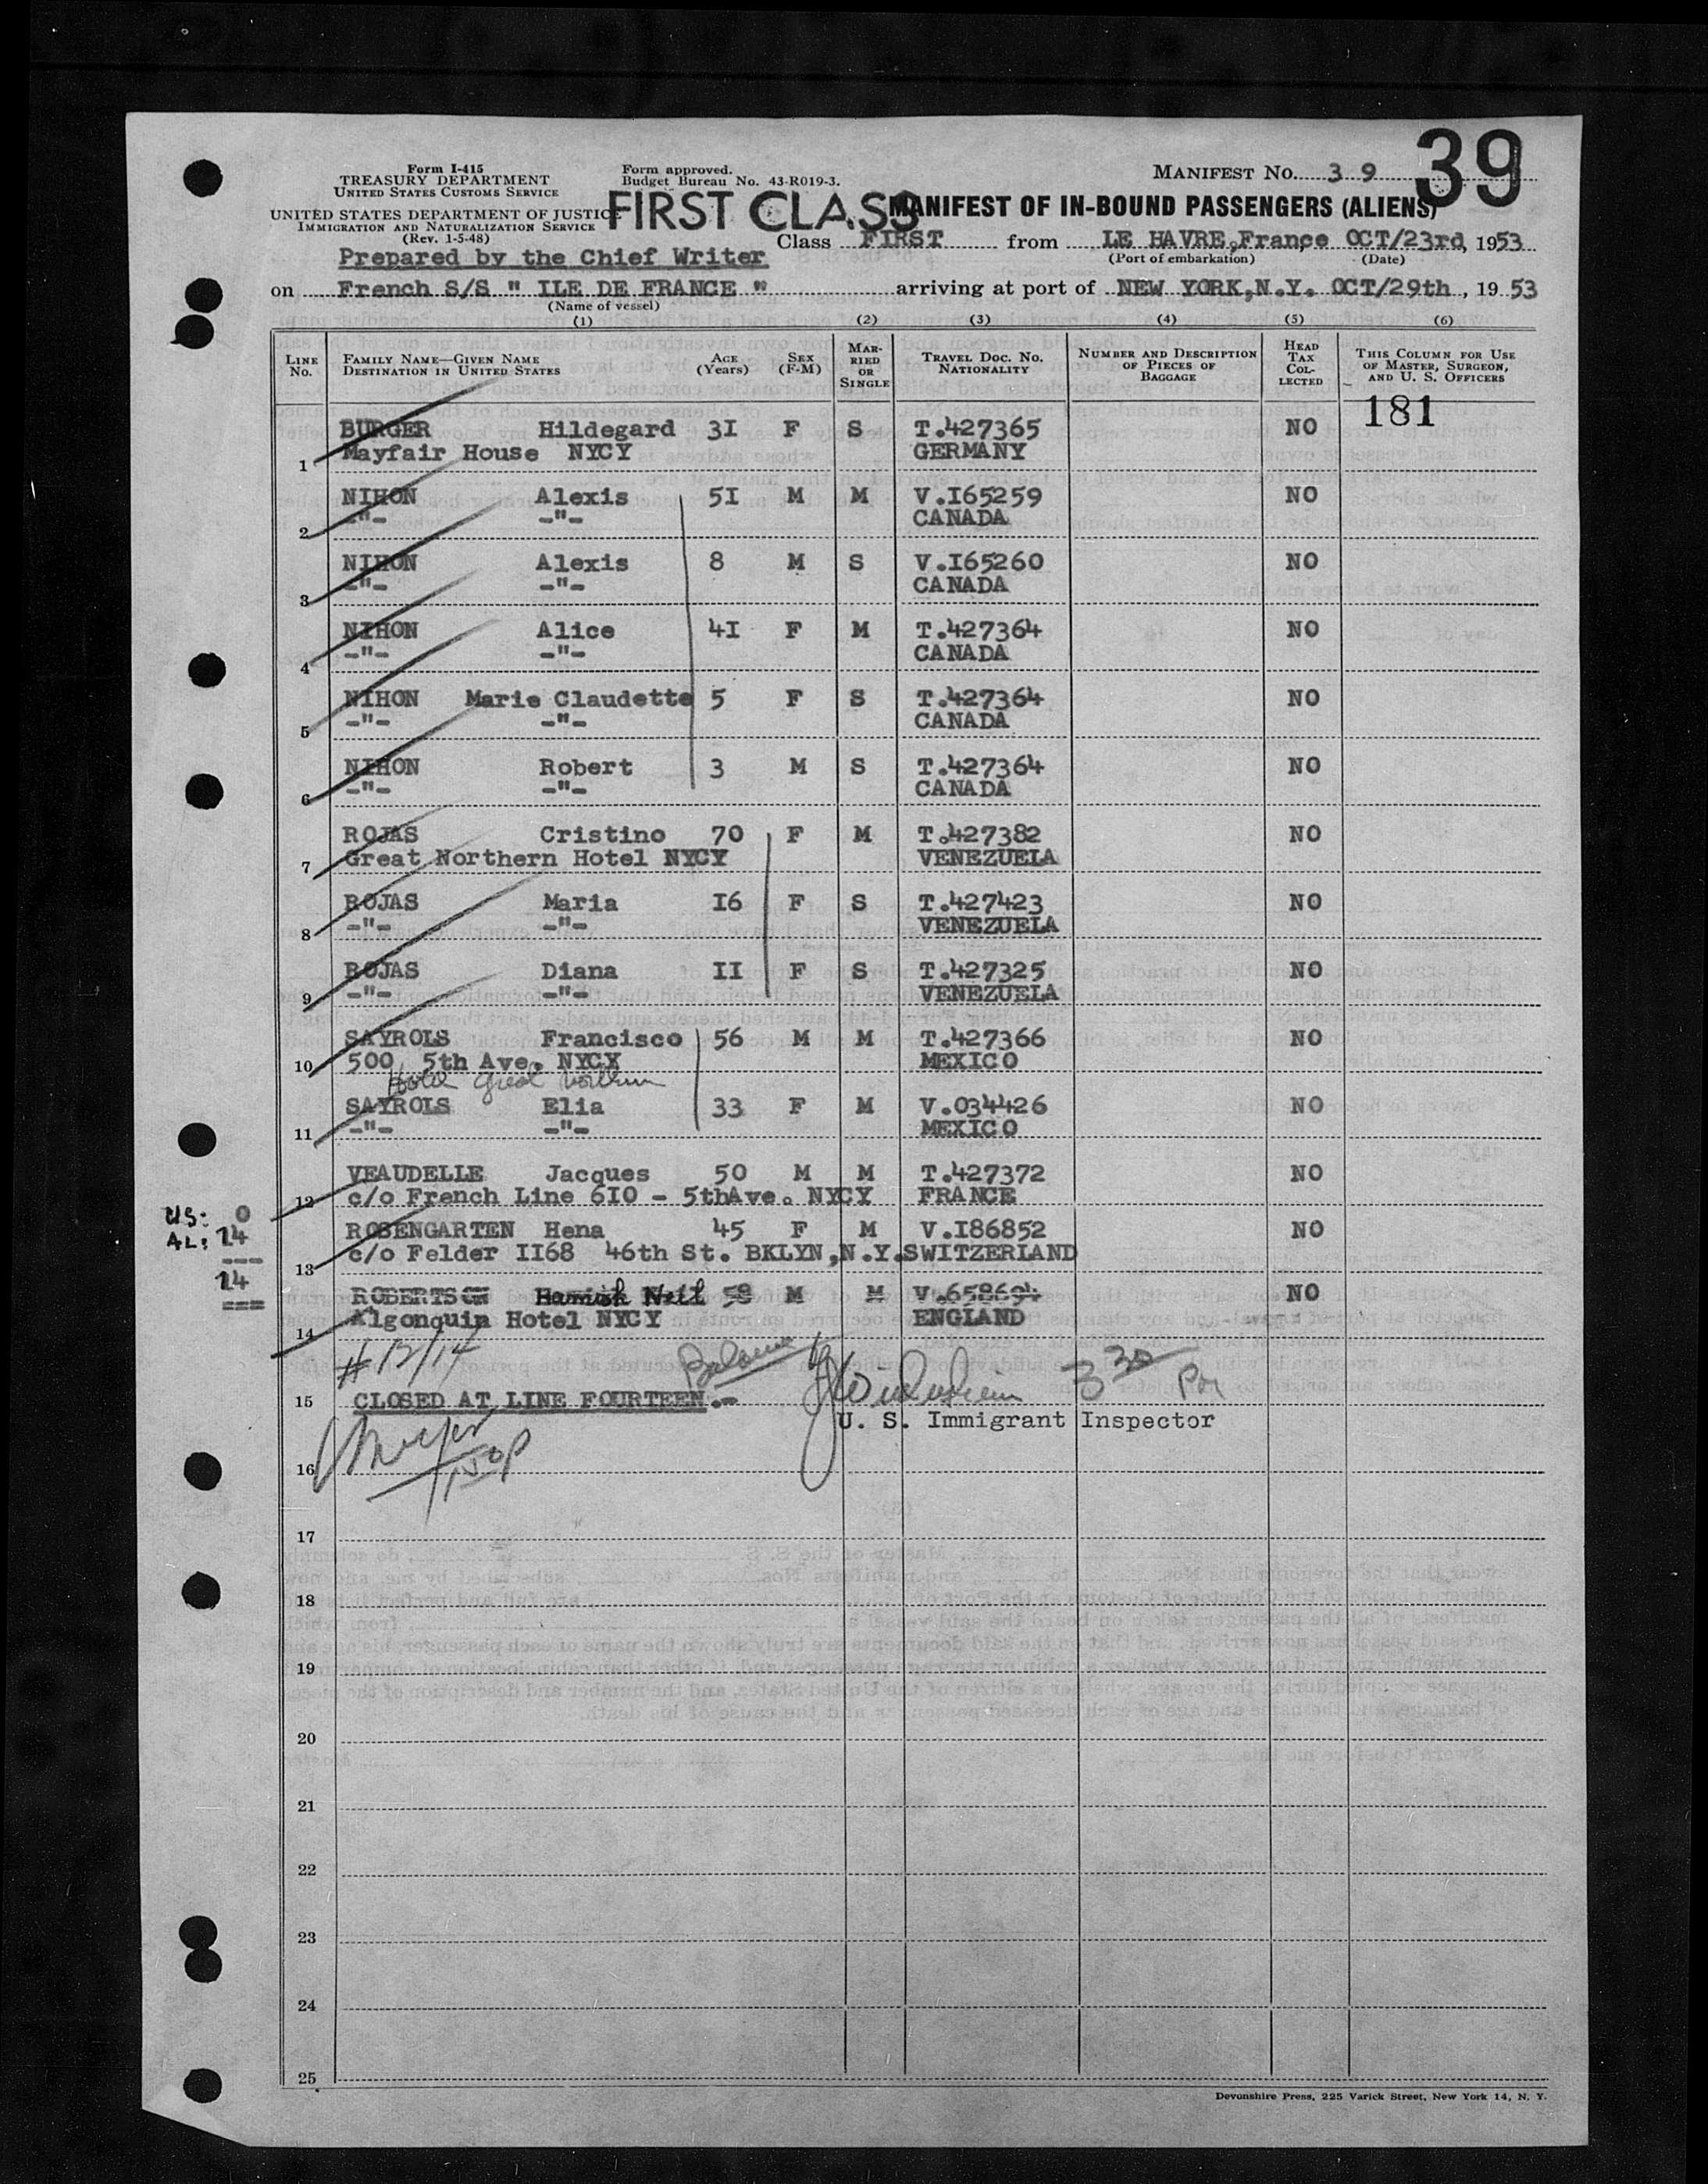 39
Form I-415
TREASURY DEPARTMENT
UNITED STATES CUSTOMS SERVICE
UNITED STATES DEPARTMENT OF JUSTICE
IMMIGRATION AND NATURALIZATION SERVICE
(Rev. 1-5-48)
Form approved.
Budget Bureau No. 43-R019-3.
MANIFEST No. 39
FIRST CLASS
MANIFEST OF IN-BOUND PASSENGERS (ALIENS)
Class FIRST from LE HAVRE, France OCT/23rd, 1953
(Port of embarkation) (Date)
Prepared by the Chief Writer
on French S/S " ILE DE FRANCE " arriving at port of NEW YORK, N.Y. OCT/29th, 1953
(Name of vessel)
(1) (2) (3) (4) (5) (6)
LINE No. FAMILY NAME—GIVEN NAME DESTINATION IN UNITED STATES AGE (Years) SEX (F-M) MARRIED OR SINGLE TRAVEL DOC. NO. NATIONALITY NUMBER AND DESCRIPTION OF PIECES OF BAGGAGE HEAD TAX COLLECTED THIS COLUMN FOR USE OF MASTER, SURGEON, AND U. S. OFFICERS
181
BURGER Hildegard 3I F S T.427365 NO
1 Mayfair House NYCY GERMANY
NIHON Alexis 5I M M V.I65259 NO
2 -"- -"- CANADA
NIHON Alexis 8 M S V.I65260 NO
3 -"- -"- CANADA
NIHON Alice 4I F M T.427364 NO
4 -"- -"- CANADA
NIHON Marie Claudette 5 F S T.427364 NO
5 -"- -"- CANADA
NIHON Robert 3 M S T.427364 NO
6 -"- -"- CANADA
ROJAS Cristino 70 F M T.427382 NO
7 Great Northern Hotel NYCY VENEZUELA
ROJAS Maria I6 F S T.427423 NO
8 -"- -"- VENEZUELA
ROJAS Diana II F S T.427325 NO
9 -"- -"- VENEZUELA
SAYROLS Francisco 56 M M T.427366 NO
10 500 5th Ave. NYCY MEXICO
Hotel Great Northern
SAYROLS Elia 33 F M V.034426 NO
11 -"- -"- MEXICO
VEAUDELLE Jacques 50 M M T.427372 NO
12 c/o French Line 6I0 - 5thAve. NYCY FRANCE
US: 0
AL: 14
14
ROSENGARTEN Hena 45 F M V.I86852 NO
13 c/o Felder II68 46th St. BKLYN,N.Y. SWITZERLAND
ROBERTSON Hamish Neil 58 M M V.658694 NO
14 Algonquin Hotel NYCY ENGLAND
#13/14
3 30 PM
15 CLOSED AT LINE FOURTEEN.-
U. S. Immigrant Inspector
16
17
18
19
20
21
22
23
24
25
Devonshire Press, 225 Varick Street, New York 14, N. Y.